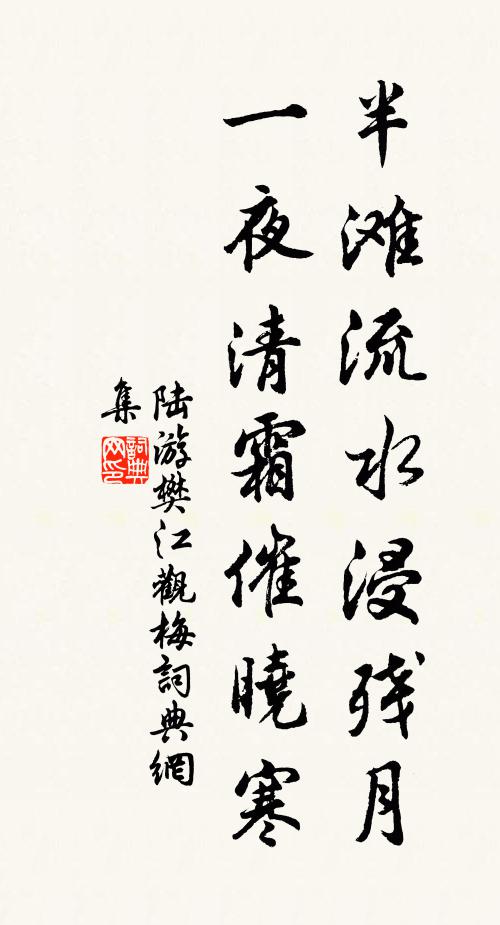 半滩流水浸残月
一夜清霜催曉寒
陆游樊江觀梅詞典網
集
詞典网印